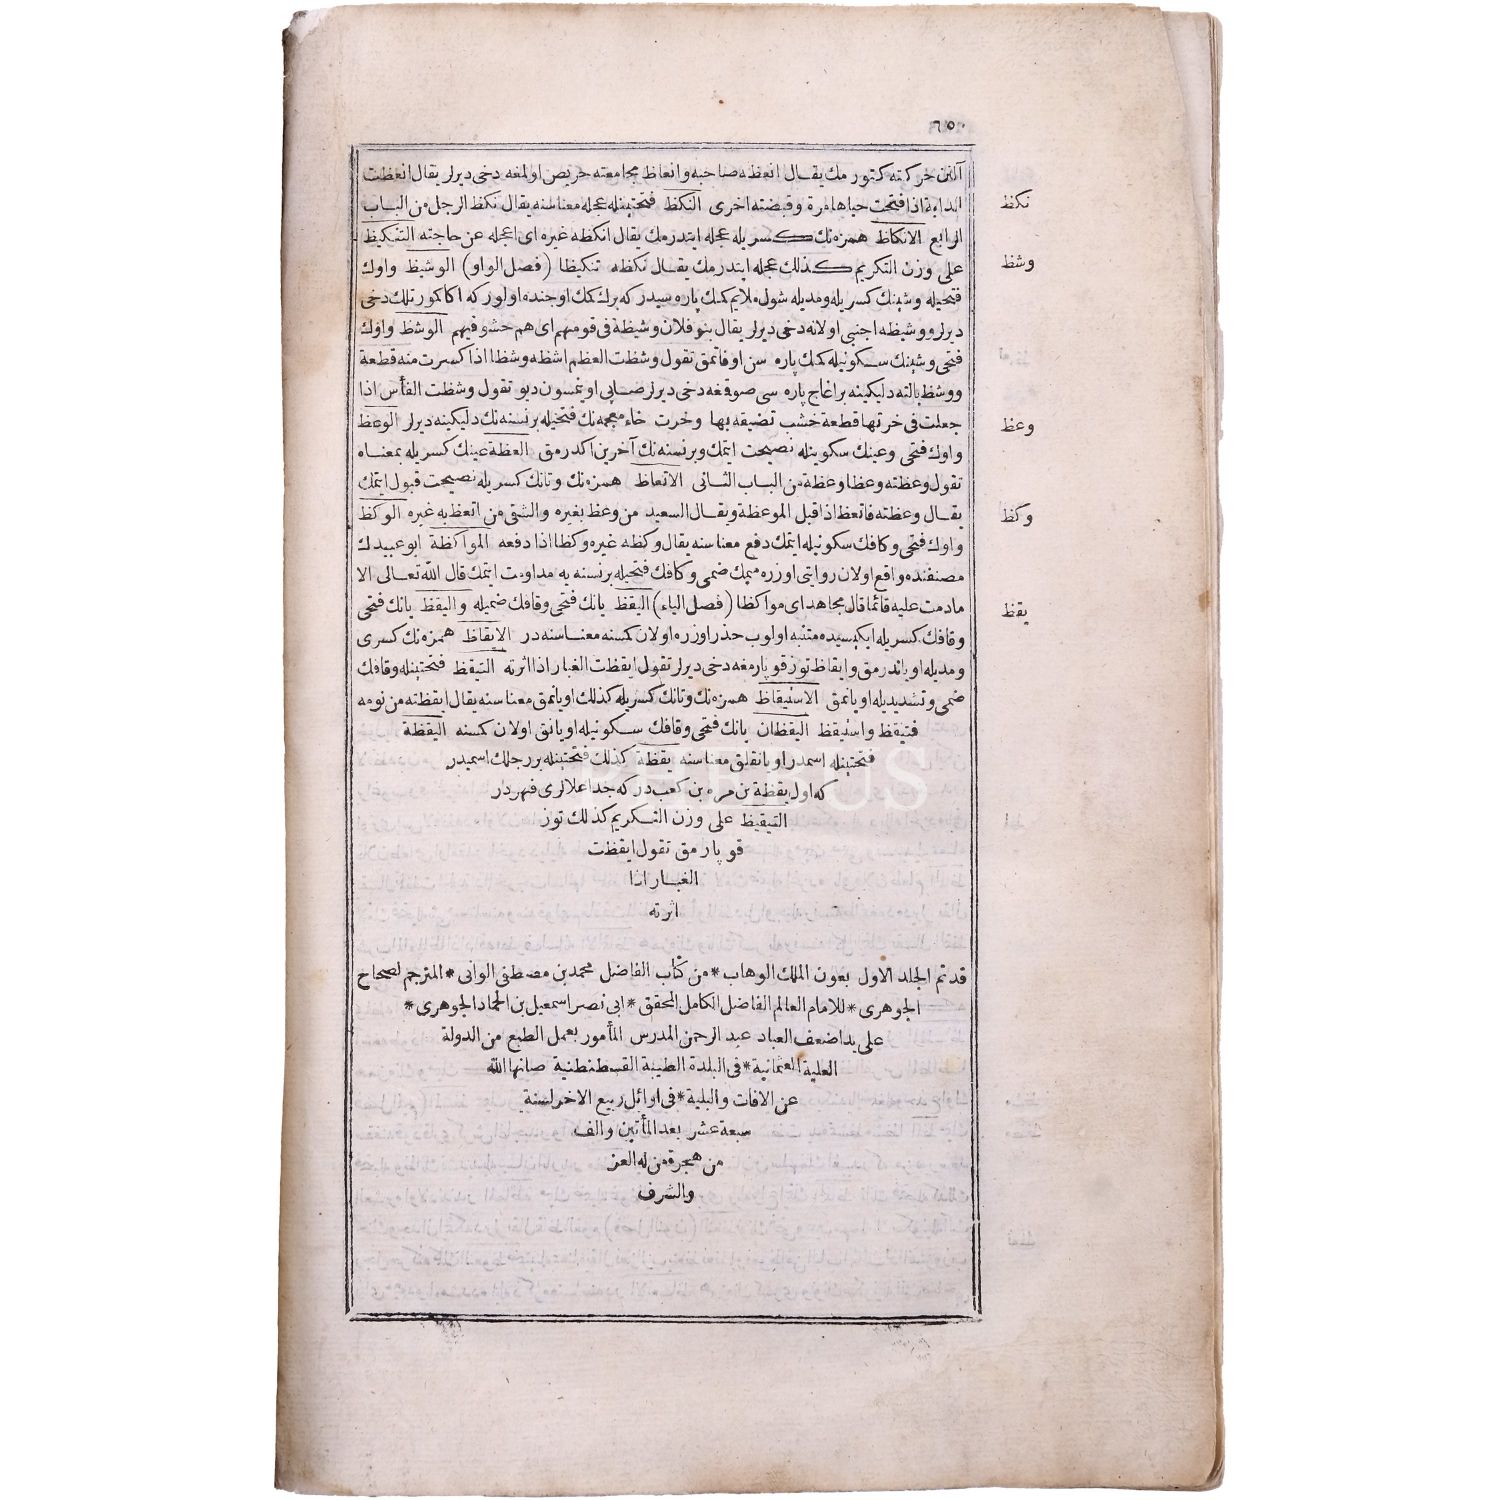 ٦٥٠
آلتن حركته كتورمك يقال انعظه صاحبه وانعاظ مجامعته حريص اولمغه دخى ديرلر يقال انعظت
نكظ
الدابة اذا فتحت حياها مرة وقبضته اخرى النكظ فتحتينله عجله معناسنه يقال نكظ الرجل من الباب
الرابع الانكاظ همزه نك كسريله عجله ايتدرمك يقال انكظه غيره اى اعجله عن حاجته التنكيظ
وشظ
على وزن التكريم كذلك عجله ايتدرمك يقال نكظه تنكيظا (فصل الواو) الوشيظ واوك
فتحيله وشينك كسريله ومديله شول ملايم كمك پاره سيدر كه برك كمك اوجنده اولور كه اكا كمورتلك دخى
ديرلر ووشيظه اجنبى اولانه دخى ديرلر يقال بنو فلان وشيظة فى قومهم اى هم حشو فيهم الوشظ واوك
فتحى وشينك سكونيله كمك پاره سن اوفاتمق تقول وشظت العظم اشظه وشظا اذا كسرت منه قطعة
ووشظ بالته دليكينه براغاج پاره سى صوقغه دخى ديرلر صاپى اوينمسون ديو تقول وشظت الفأس اذا
وعظ
جعلت فى خرتها قطعة خشب تضيقه بها وخرت خاء معجمه نك فتحيله برنسنه نك دليكينه ديرلر الوعظ
واوك فتحى وعينك سكونيله نصيحت ايتمك وبرنسنه نك آخرين اكدرمق العظة عينك كسريله بمعناه
تقول وعظته وعظا وعظة من الباب الثانى الاتعاظ همزه نك وتانك كسريله نصيحت قبول ايتمك
وكظ
يقال وعظته فاتعظ اذا قبل الموعظة ويقال السعيد من وعظ بغيره والشقى من اتعظ به غيره الوكظ
واوك فتحى وكافك سكونيله ايتمك دفع معناسنه يقال وكظه غيره وكظا اذا دفعه المواكظة ابو عبيدك
مصنفنده واقع اولان روايتى اوزره ميمك ضمى وكافك فتحيله برنسنه يه مداومت ايتمك قال الله تعالى الا
يقظ
مادمت عليه قائما قال مجاهد اى مواكظا (فصل الياء) اليقظ يانك فتحى وقافك ضميله واليقظ يانك فتحى
وقافك كسريله ايكيسيده متنبه اولوب حذر اوزره اولان كمسنه معناسنه در الايقاظ همزه نك كسرى
ومديله اوياندرمق وايقاظ توز قوپارمغه دخى ديرلر تقول ايقظت الغبار اذا اثرته التيقظ فتحتينله وقافك
ضمى وتشديديله اويانمق الاستيقاظ همزه نك وتانك كسريله كذلك اويانمق معناسنه يقال ايقظته من نومه
فتيقظ واستيقظ اليقظان يانك فتحى وقافك سكونيله اويانق اولان كمسنه اليقظة
فتحتينله اسمدر اويانقلق معناسنه يقظة كذلك فتحتينله بر رجلك اسميدر
كه اول يقظة بن مره بن كعب در كه جد اعلالرى فهردر
التيقيظ على وزن التكريم كذلك توز
قوپارمق تقول ايقظت
الغبار اذا
اثرته
قد تم الجلد الاول بعون الملك الوهاب * من كتاب الفاضل محمد بن مصطفى الوانى * المترجم لصحاح
الجوهرى * للامام العالم الفاضل الكامل المحقق * ابى نصر اسمعيل بن الحماد الجوهرى *
على يد اضعف العباد عبد الرحمن المدرس المأمور بعمل الطبع من الدولة
العلية العثمانية * فى البلدة الطيبة القسطنطنية صانها الله
عن الافات والبلية * فى اوائل ربيع الاخر لسنة
سبعة عشر بعد المأتين والف
من هجرة من له العز
والشرف
PHEBUS